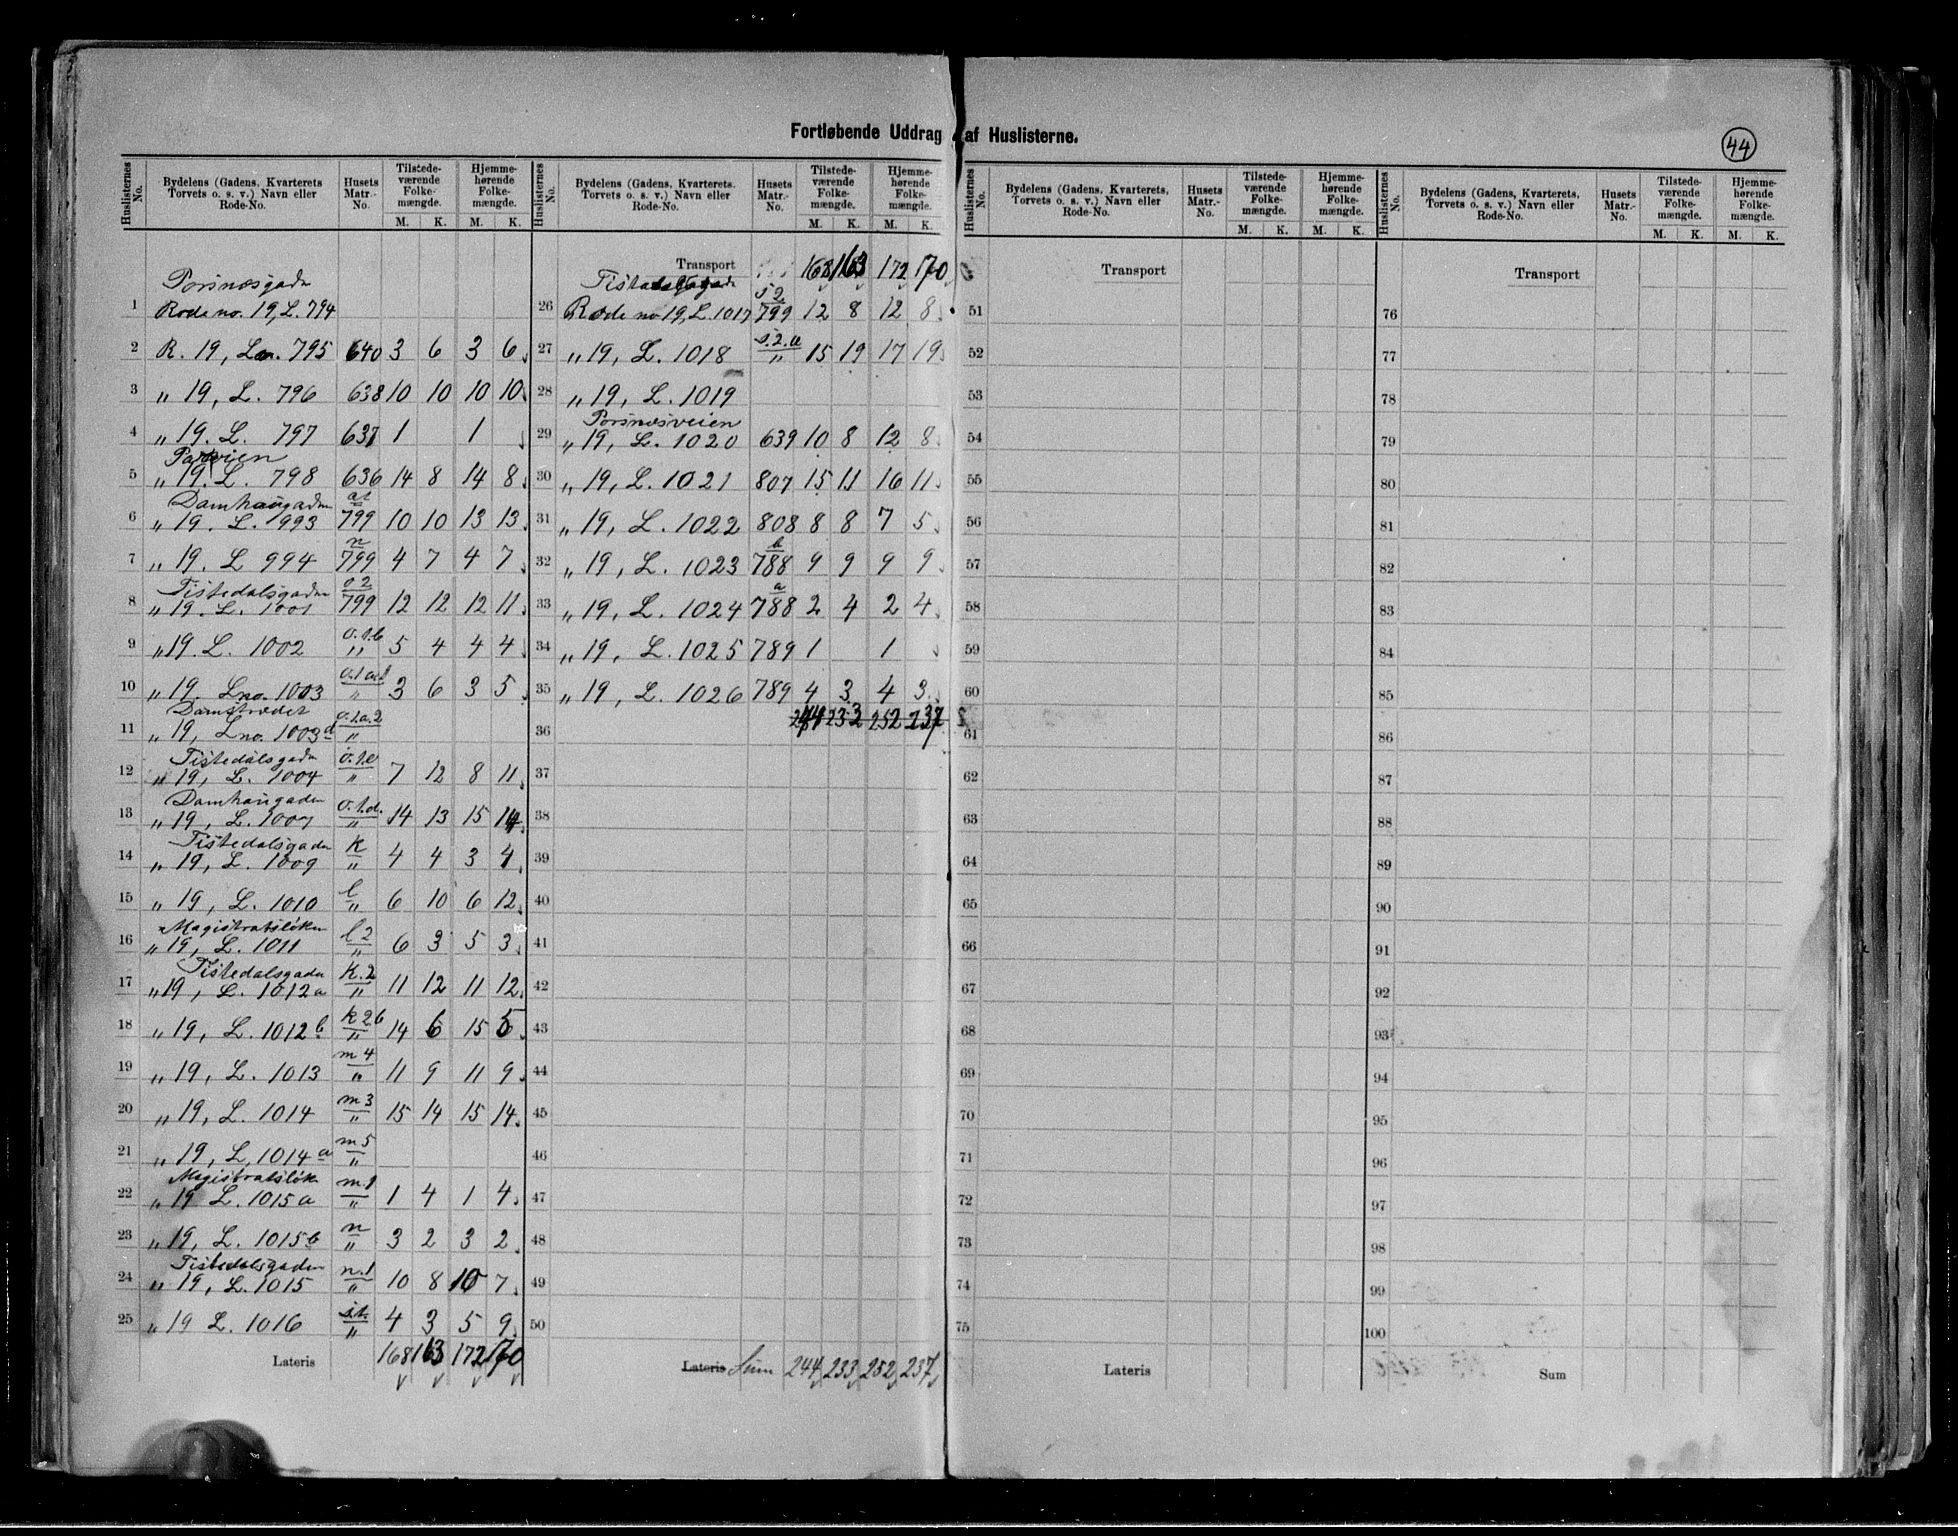 Fortløbende Uddrag af Huslisterne.
44
Huslisternes No. Bydelens (Gadens, Kvarterets Torvets o. s. v.) Navn eller Rode-No. Husets Matr.-No. Tilstedeværende Folkemængde. M. K. Hjemmehørende Folkemængde. M. K.
Porsnæsgada
1 Rode no. 19, L. 794
2 R. 19, Ln. 795 640 3 6 3 6
3 „ 19, L. 796 638 10 10 10 10
4 „ 19. L. 797 637 1 1
5 „ 19. L. 798 636 14 8 14 8
Damhaugaden
6 „ 19. L. 993 799 10 10 13 13
7 „ 19. L 994 n 799 4 7 4 7
Tistedalsgaden
8 „ 19. L. 1001 o 2 799 12 12 12 11
9 „ 19. L. 1002 o.1.b „ 5 4 4 4
10 „ 19. Lno. 1003 „ 3 6 3 5
Damstrædet
11 „ 19, Lno. 1003d o.1.a.2 „
Tistedalsgaden
12 „ 19, L. 1004 „ 7 12 8 11
Damhaugaden
13 „ 19, L. 1007 o.1.d. „ 14 13 15 14
Tistedalsgaden
14 „ 19, L. 1009 k „ 4 4 3 4
15 „ 19, L. 1010 l „ 6 10 6 12
Magistratsløken
16 „ 19, L. 1011 l 2 „ 6 3 5 3
Tistedalsgaden
17 „ 19, L. 1012a k.2 „ 11 12 11 12
18 „ 19, L. 1012b k 2b „ 14 6 15 5
19 „ 19, L. 1013 m 4 „ 11 9 11 9
20 „ 19, L. 1014 m 3 „ 15 14 15 14
21 „ 19, L. 1014a m 5 „
Magistratsløk
22 „ 19 L. 1015a m.1 „ 1 4 1 4
23 „ 19, L. 1015b n „ 3 2 3 2
Tistedalsgaden
24 „ 19, L. 1015 n.1 „ 10 8 10 7
25 „ 19 L. 1016 „ 4 3 5 9
Lateris 168 163 172 170
Huslisternes No. Bydelens (Gadens, Kvarterets. Torvets o. s. v.) Navn eller Rode-No. Husets Matr.-No. Tilstedeværende Folkemængde. M. K. Hjemmehørende Folkemængde. M. K.
Transport 168 163 172 170
Tistedalsgada
26 Rode no 19, L. 1017 s 2 799 12 8 12 8
27 „ 19, L. 1018 s.2.a „ 15 19 17 19
28 „ 19, L. 1019
Porsnæsveien
29 „ 19, L. 1020 639 10 8 12 8
30 „ 19, L. 1021 807 15 11 16 11
31 „ 19, L. 1022 808 8 8 7 5
32 „ 19, L. 1023 b 788 9 9 9 9
33 „ 19, L. 1024 a 788 2 4 2 4
34 „ 19, L. 1025 789 1 1
35 „ 19, L. 1026 789 4 3 4 3
36 244 233 252 237
37
38
39
40
41
42
43
44
45
46
47
48
49
50
Lateris Sum 244 233 252 237
Huslisternes No. Bydelens (Gadens, Kvarterets, Torvets o. s. v.) Navn eller Rode-No. Husets Matr.-No. Tilstedeværende Folkemængde. M. K. Hjemmehørende Folkemængde. M. K.
Transport
51
52
53
54
55
56
57
58
59
60
61
62
63
64
65
66
67
68
69
70
71
72
73
74
75
Lateris
Huslisternes No. Bydelens (Gadens, Kvarterets, Torvets o. s. v.) Navn eller Rode-No. Husets Matr.-No. Tilstedeværende Folkemængde. M. K. Hjemmehørende Folkemængde. M. K.
Transport
76
77
78
79
80
81
82
83
84
85
86
87
88
89
90
91
92
93
94
95
96
97
98
99
100
Sum